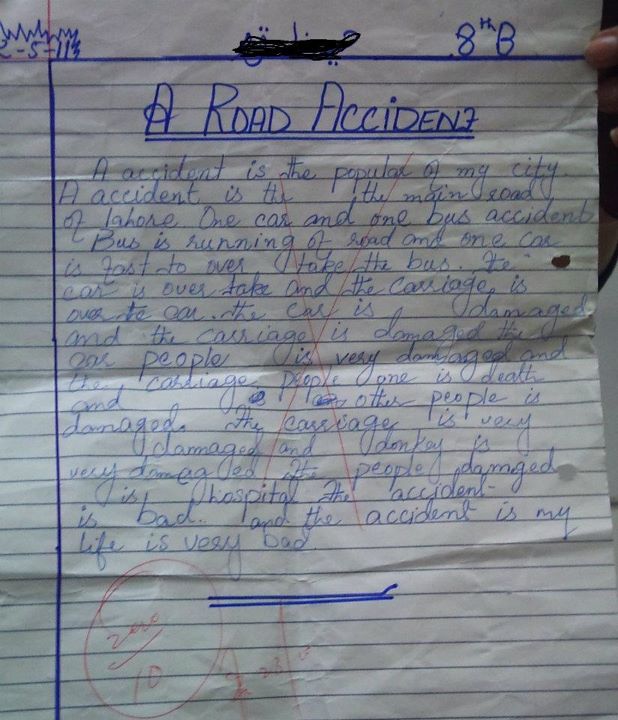 2-5-11
8th B
A ROAD ACCIDENT
A accident is the popular of my city.
A accident is the the main road
of lahore One car and one bus accident
Bus is running of road and one car
is fast to over take the bus. the
car is over take and the carriage is
over te car. the car is damaged
and the carriage is damaged the
car people is very damaged and
the carriage people one is death
and other people is
damaged. the carriage is very
damaged and donkey is
very damaged the people damaged
is hospital the accident
is bad. and the accident is my
life is very bad
zero
10